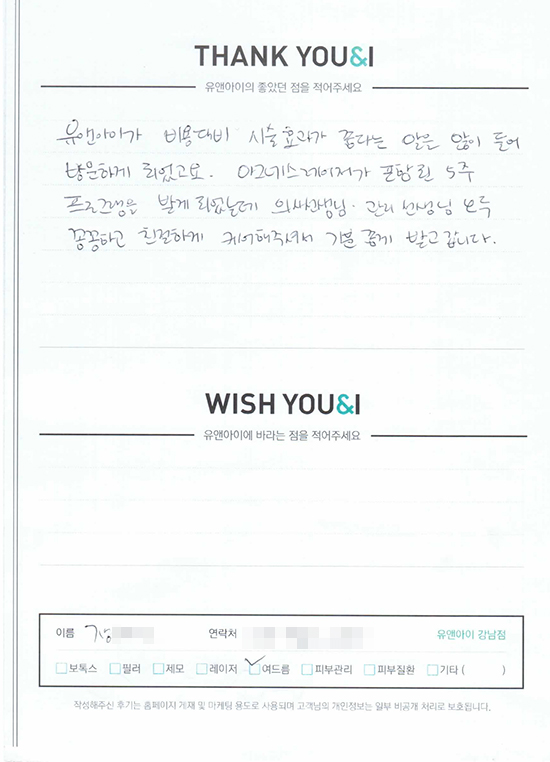 THANK YOU&I
유앤아이의 좋았던 점을 적어주세요
유앤아이가 비용대비 시술효과가 좋다는 말은 많이 들어
방문하게 되었고요. 아그네스레이저가 포함된 5주
프로그램을 받게되었는데 의사선생님. 관리 선생님 모두
꼼꼼하고 친절하게 케어해주셔서 기분 좋게 받고 갑니다.
WISH YOU&I
유앤아이에 바라는 점을 적어주세요
이름 연락처 유앤아이 강남점
보톡스 필러 제모 레이저 여드름 피부관리 피부질환 기타 ( )
작성해주신 후기는 홈페이지 게재 및 마케팅 용도로 사용되며 고객님의 개인정보는 일부 비공개 처리로 보호됩니다.